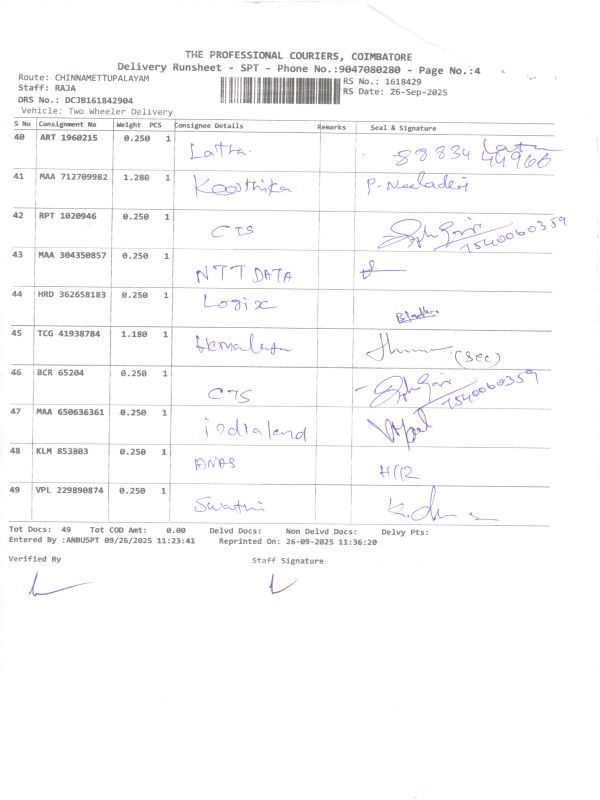 THE PROFESSIONAL COURIERS, COIMBATORE
Delivery Runsheet - SPT - Phone No.:9047080280 - Page No.:4
Route: CHINNAMETTUPALAYAM RS No.: 1618429
Staff: RAJA RS Date: 26-Sep-2025
DRS No.: DCJB161842904
Vehicle: Two Wheeler Delivery
S No Consignment No Weight PCS Consignee Details Remarks Seal & Signature
40 ART 1960215 0.250 1 Latha 88834 44960
41 MAA 712709982 1.280 1 Koothika P. Neeladevi
42 RPT 1020946 0.250 1 CTS 7540060359
43 MAA 304350857 0.250 1 NTT DATA
44 HRD 362658183 0.250 1 Logix
45 TCG 41938784 1.180 1 (Sec)
46 BCR 65204 0.250 1 CTS 7540060359
47 MAA 650636361 0.250 1 indialand
48 KLM 853803 0.250 1 ANAS
49 VPL 229890874 0.250 1 Swathi
Tot Docs: 49 Tot COD Amt: 0.00 Delvd Docs: Non Delvd Docs: Delvy Pts:
Entered By :ANBUSPT 09/26/2025 11:23:41 Reprinted On: 26-09-2025 11:36:20
Verified By Staff Signature